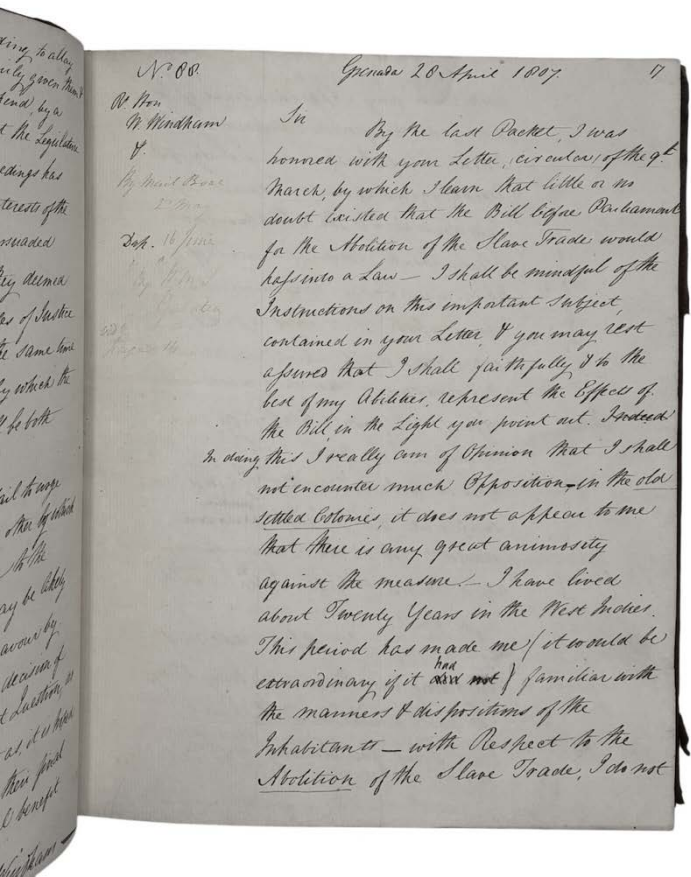 ding to allay
rily given them &
tend, by a
t the Legislature
edings has
terests of the
rsuaded
they deemed
les of Justice
the same time
by which the
ll be both
ail to urge
other by which
to the
ay be likely
avour by
decision of
t Question, is
as, it is hoped
their final
l benefit
Windham
No. 88.
Grenada 28 April 1807.
17
Rt. Hon
W. Windham
&.
By Mail Boat
2d May
Dup. 16 June
By
Sir
By the last Packet, I was
honored with your Letter, (circular) of the 9th.
March, by which I learn that little or no
doubt existed that the Bill before Parliament
for the Abolition of the Slave Trade would
pass into a Law — I shall be mindful of the
Instructions on this important subject,
contained in your Letter, & you may rest
assured that I shall faithfully & to the
best of my Abilities, represent the Effects of
the Bill, in the Light you point out. Indeed
In doing this I really am of Opinion that I shall
not encounter much Opposition — in the old
settled Colonies, it does not appear to me
that there is any great animosity
against the measure. — I have lived
about Twenty Years in the West Indies.
This period has made me (it would be
extraordinary if it did had not) familiar with
the manners & dispositions of the
Inhabitants — with Respect to the
Abolition of the Slave Trade, I do not